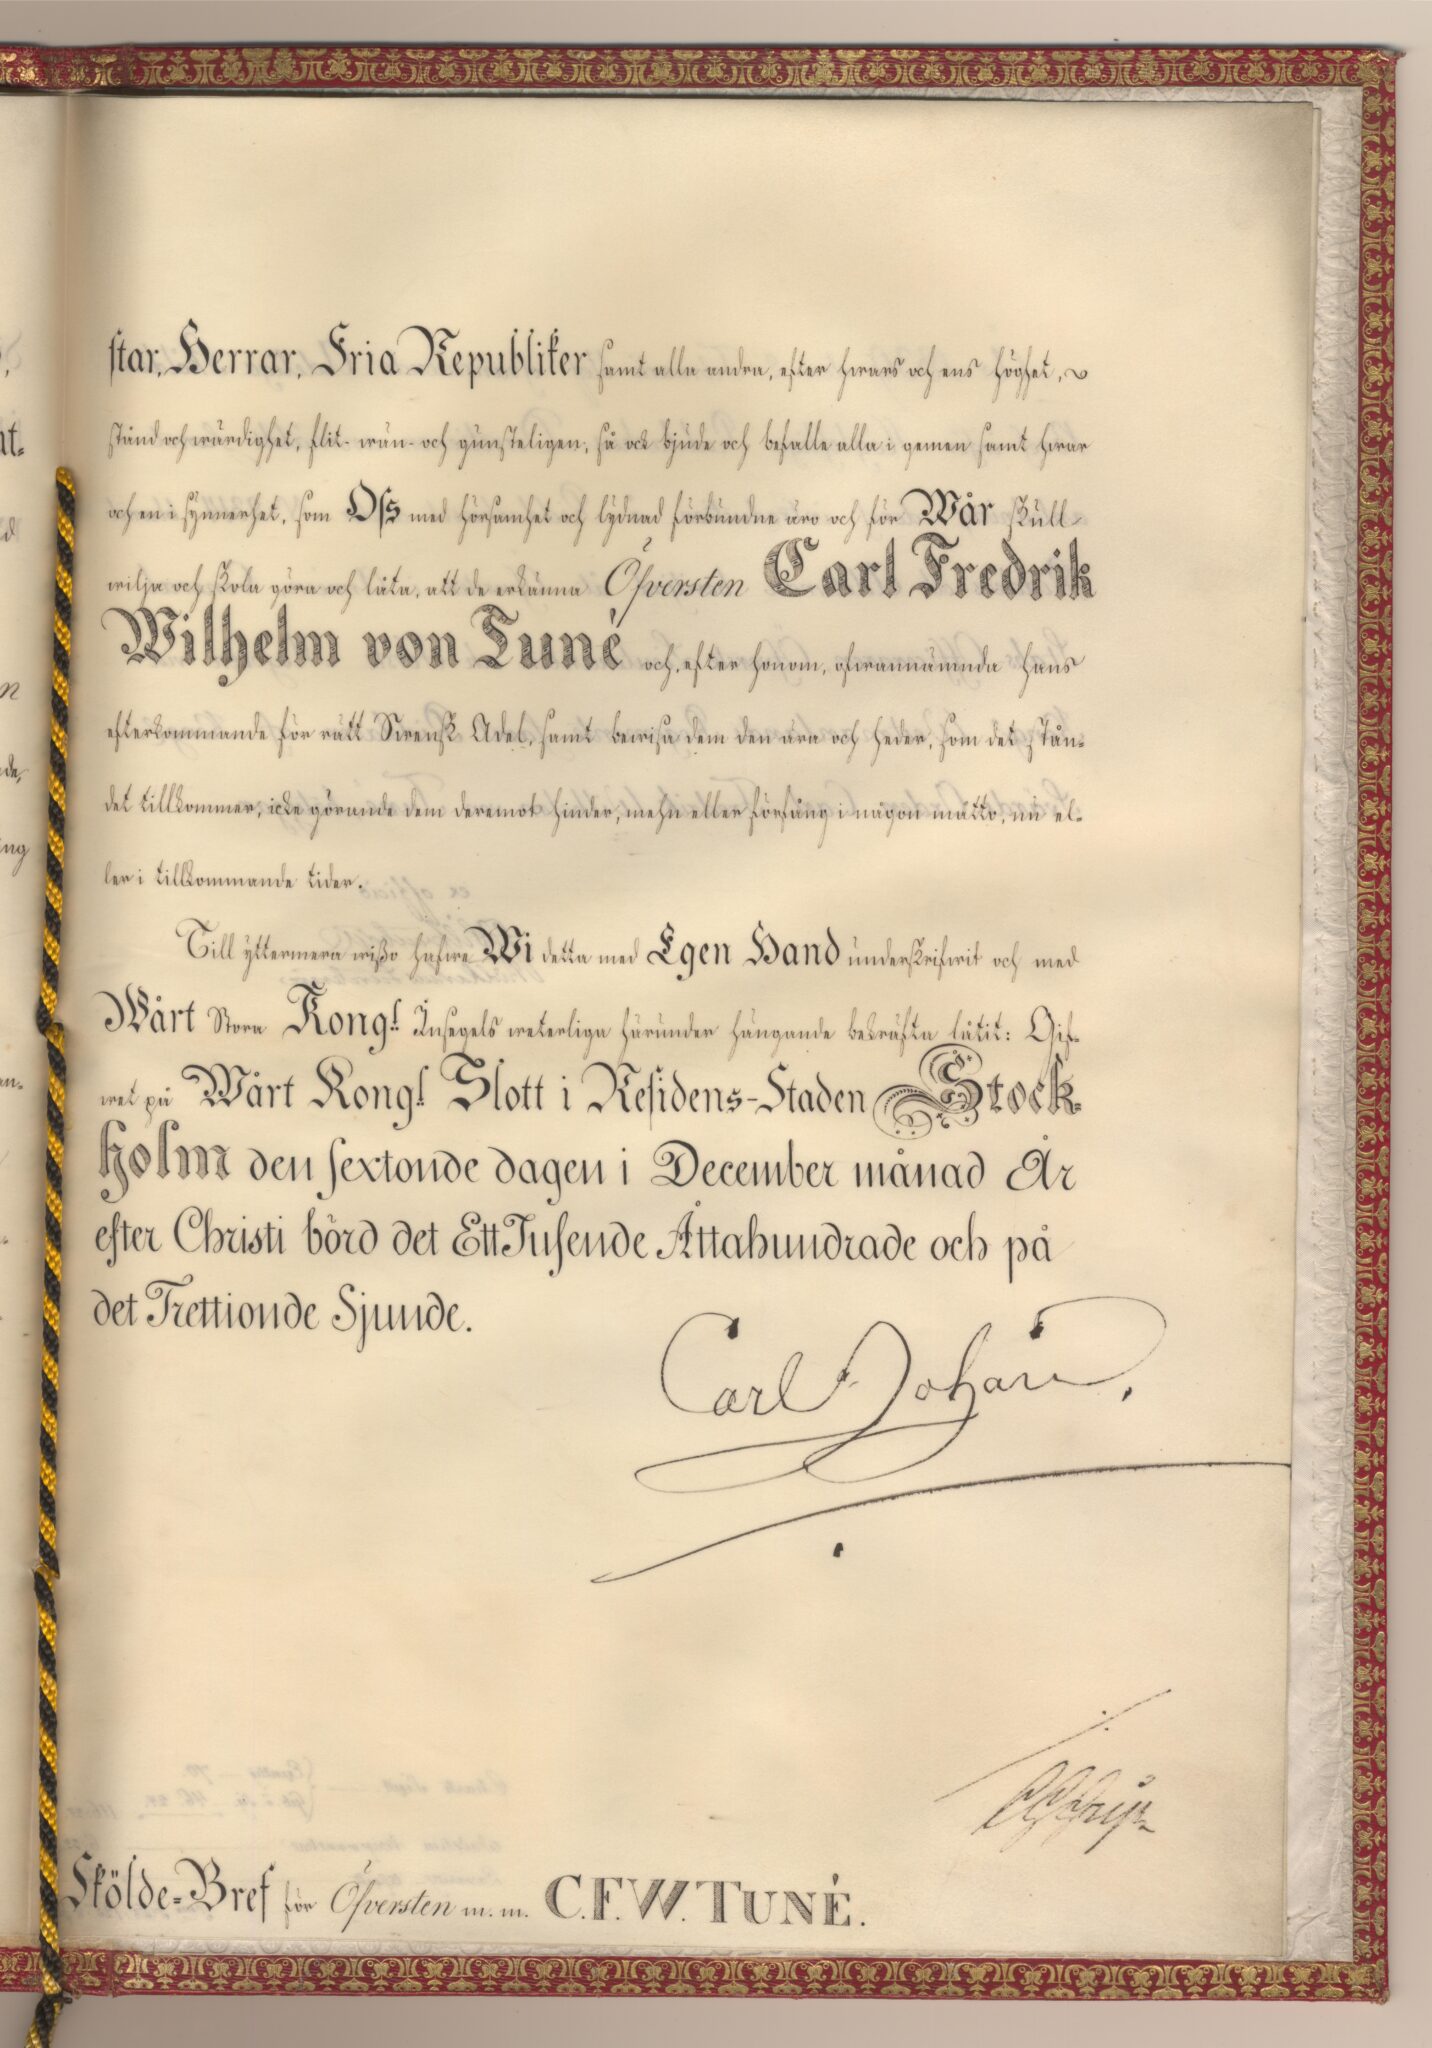 star, Herrar, Fria Republiker samt alla andra, efter hwars och ens höghet,
stånd och wärdighet, flit- wän- och gunsteligen; så ock bjude och befalle alla i gemen samt hwar
och en i synnerhet, som Oss med hörsamhet och lydnad förbundne äro och för Wår skull
wilja och skola göra och låta, att de erkänna Öfversten Carl Fredrik
Wilhelm von Tuné och, efter honom, ofwannämnda hans
efterkommande för rätt Swensk Adel, samt bewisa dem den ära och heder, som det stån-
det tillkommer, icke görande dem deremot hinder, mehn eller förfång i någon måtto, nu el-
ler i tillkommande tider.
Till yttermera wißo hafwe Wi detta med Egen Hand underskrifwit och med
Wårt Stora Kongl. Insegels weterliga härunder hängande bekräfta låtit: Gif-
wet på Wårt Kongl. Slott i Residens-Staden Stock-
holm den sextonde dagen i December månad År
efter Christi börd det Ett Tusende Åttahundrade och på
det Trettionde Sjunde.
Carl Johan.
Skölde-Bref för Öfversten m. m. C. F. W. TUNÉ.